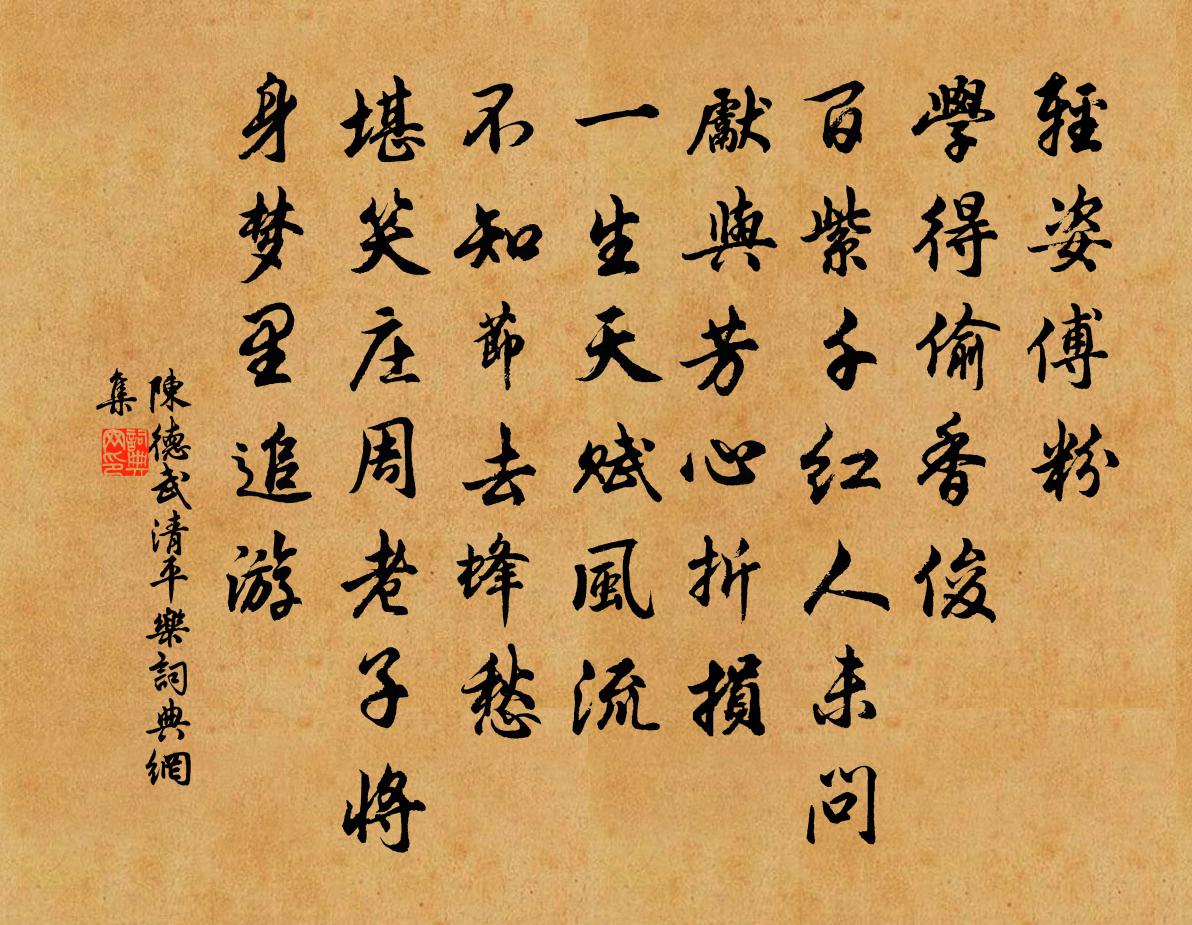 輕姿傅粉
學得偷香俊
百紫千红人未问
獻與芳心折損
一生天赋風流
不知節去蜂愁
堪笑庄周老子将
身梦里追游
陳德武清平樂詞典網
集
詞典網印